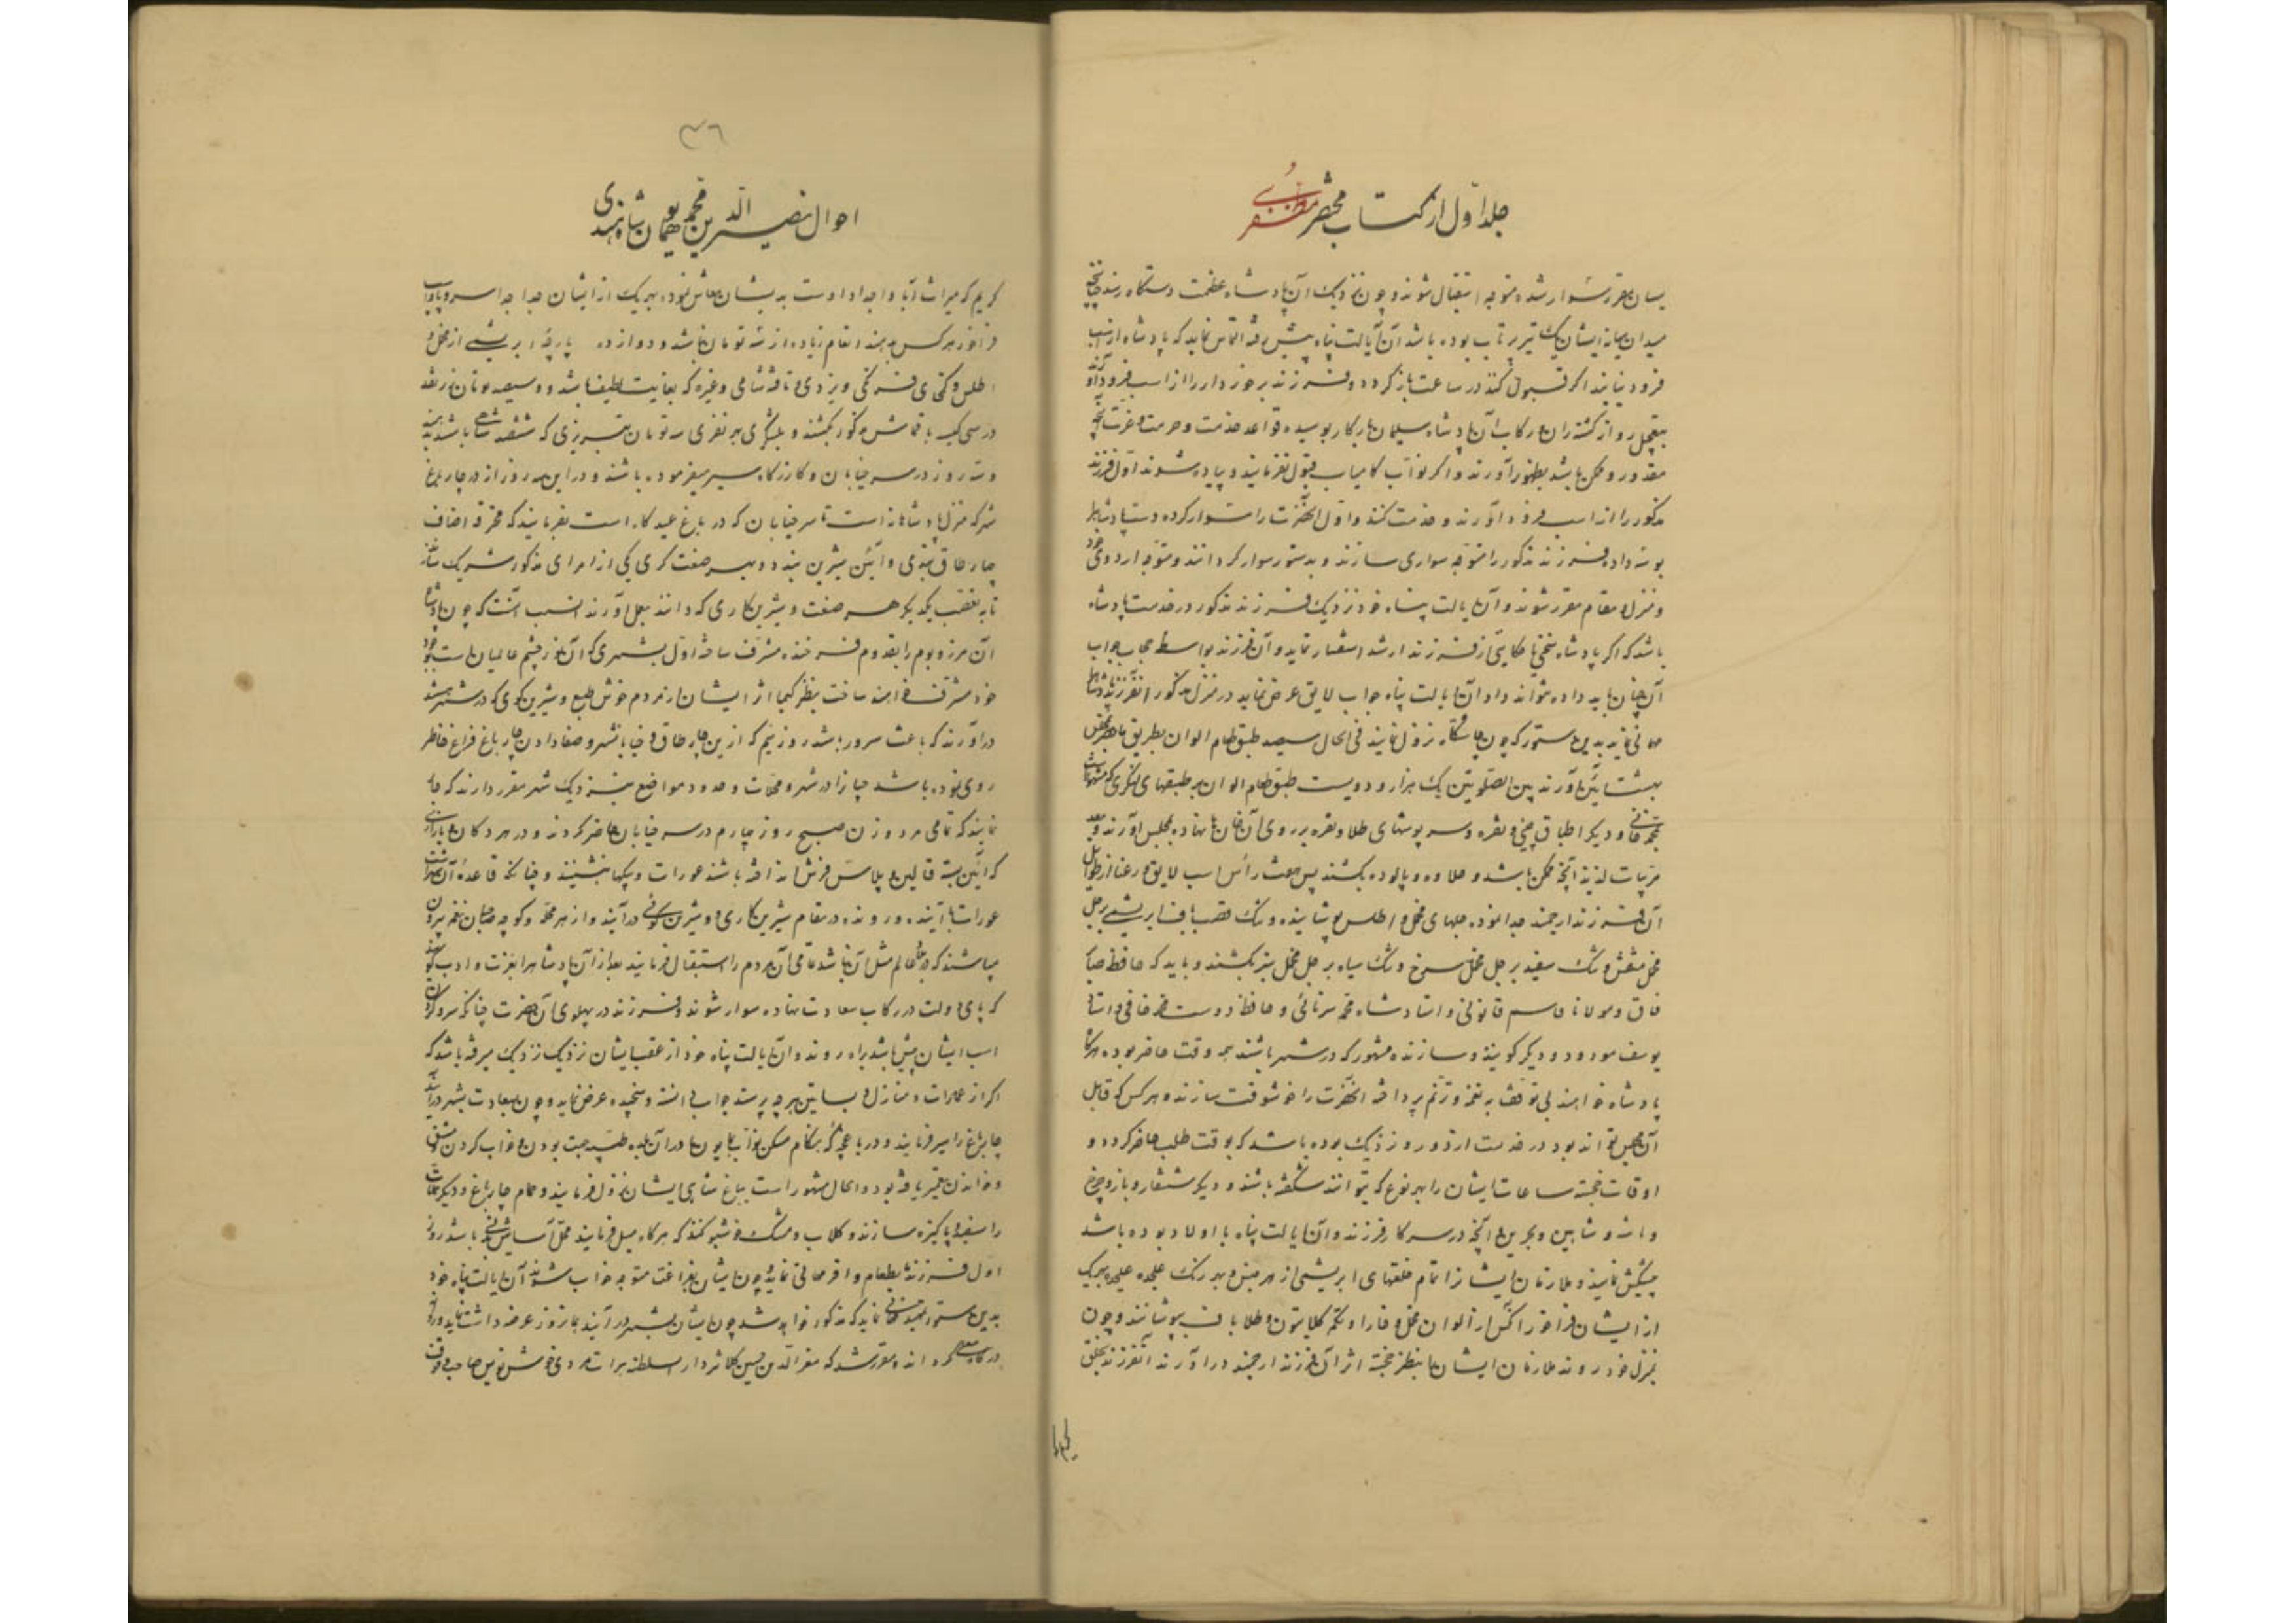 جلد اول از کتاب مختصر مظفری
یسان مقرر سوار شده متوجه استقبال شوند و چون نزدیک آن پادشاه عظمت دستگاه رسند چنانچه
میدان میانه ایشان یک تیر پرتاب بوده باشد آن ایالت پناه پیش رفته التماس نماید که پادشاه از اسب
فرود نیایند اگر قبول کنند در ساعت باز گردد و فرزند برخوردار را از اسب فرود آورند
بتعجیل روانه گشته ران و رکاب آن پادشاه سلیمان بارگاه بوسیده قواعد خدمت و حرمت و عزت آنچه
مقدور و ممکن باشد بظهور آورند و اگر نواب کامیاب قبول نفرمایند و پیاده شوند اول فرزند
مذکور را از اسب فرود آورند و خدمت کنند و اول آنحضرت را سوار کرده دست پادشاه را
بوسه داده فرزند مذکور را متوجه سواری سازند و بدستور سوار گردانند و متوجه اردوی خود
و منزل و مقام مقرر شوند و آن ایالت پناه خود نزدیک فرزند مذکور در خدمت پادشاه
باشد که اگر پادشاه سخنی یا حکایتی از فرزند ارشد استفسار نماید و آن فرزند بواسطه حجاب جواب
آن چنان باید داده نتواند داد آن ایالت پناه جواب لایق عرض نماید در منزل مذکور آنفرزند پادشاه را
مهمانی نماید بدین دستور که چون چاشتگاه نزول نمایند فی الحال سیصد طبق طعام الوان بطریق ماحضر بمجلس
بهشت آئین آورند بین الصلوتین یک هزار و دویست طبق طعام الوان بر طبقهای لنگری که مشهور است
بمحمد خانی و دیگر اطباق چینی و نقره و سرپوشهای طلا و نقره بر روی آن خوان ها نهاده بمجلس آورند و بعد
مربیات لذیذ آنچه ممکن باشد و حلاوه و پالوده بکشند پس هفت رأس اسب لایق و رعنا از طوایل
آن فرزند ارجمند جدا نموده جلهای مخمل و اطلس پوشانیده و تنگ قصب باف ابریشمی بر جل
مخمل منقش و تنگ سفید بر جل مخمل سرخ و تنگ سیاه بر جل مخمل سبز بکشند و باید که حافظ صابر
قاق و مولانا قاسم قانونی و استاد شاه محمد سرنائی و حافظ دوست محمد خافی و استاد
یوسف مودود و دیگر گوینده و سازنده مشهور که در شهر باشند همه وقت حاضر بوده هرگاه
پادشاه خواهند بی توقف به نغمه و ترنم پرداخته آنحضرت را خوشوقت سازند و هر کس که قابل
آن مجلس تواند بود در خدمت از دور و نزدیک بوده باشد که بوقت طلب حاضر گردد و
اوقات خجسته ساعات ایشان را بهر نوع که بتوانند شکفته باشند و دیگر شنقار و باز و چرخ
و باشه و شاهین و بحری و آنچه در سرکار فرزند و آن ایالت پناه با اولاد بوده باشد
پیشکش نمایند و ملازمان ایشانرا تمام خلعتهای ابریشمی از هر جنس و بهر رنگ علیحده علیحده بهر یک
از ایشان فراخور آنکس از الوان مخمل و خارا و تکمه کلابتون و طلا باف بپوشانند و چون
بمنزل خود روند ملازمان ایشان را بنظر خجسته اثر آن فرزند ارجمند درآورند آنفرزند بخلق
۳۶
احوال نصیر الدین محمد همایون پادشاه هندی
کریم که میراث آبا و اجداد اوست بدیشان معاش نموده بهر یک از ایشان جدا جدا اسب و پا
فراخور هر کس بدهند انعام زیاده از سه تومان نباشد و دوازده پارچه ابریشمی از مخمل و
اطلس و کمخای فرنگی و یزدی و تافته شامی و غیره که بغایت لطیف باشد و سیصد تومان زر نقد
در سی کیسه با قماش مذکور بکشند و بلشکری هر نفری سه تومان تبریزی که ششصد شاهی باشد بدهند
و سه روز در سر خیابان و کارزگاه سیر میفرموده باشند و در این سه روز از در چارباغ
شهر که منزل پادشاهانه است تا سر خیابان که در باغ عیدگاه است بفرمایند که محترفه اصناف
چار طاق بندی و آئین شیرین بندند و بهر صنعت گری یکی از امرای مذکور شریک سازند
تا به تعصب یکدیگر هر صنعت و شیرین کاری که دانند بعمل آورند انسب آنست که چون پادشاه
آن مرز و بوم را بقدوم فرخنده مشرف ساخته اول بشهری که آن نور چشم عالمیان است بوجود
خود مشرف خواهند ساخت بنظر کیمیا اثر ایشان از مردم خوش طبع و شیرین گوی که در شهر میباشند
درآورند که باعث سرور باشد روز سیم که از این چار طاق و خیابان شهر و صفا دادن چارباغ فراغ خاطر
روی نموده باشد جار زنند در شهر و محلات و حدود مواضع نزدیک شهر مقرر دارند که جار
نمایند که تمامی مرد و زن صبح روز چهارم در سر خیابان حاضر گردند و در هر دکان و بازاری
که آئین بسته قالین و پلاس فرش انداخته باشند عورات و بیگهها بنشینند و چنانکه قاعده آن شهر است
عورات با آینده و رونده در مقام شیرین کاری و شیرین گوئی درآیند و از هر محله و کوچه صاحبان نغمه بیرون
میباشند که در عالم مثل آن نباشد تمامی آن مردم را استقبال فرمایند بعد از آن پادشاه را بعزت و ادب گویند
که پای دولت در رکاب سعادت نهاده سوار شوند و فرزند در پهلوی آن حضرت چنانکه سر و گردن
اسب ایشان پیش باشد براه روند و آن ایالت پناه خود از عقب ایشان نزدیک نزدیک میرفته باشد که
اگر از عمارات و منازل و بساتین هر چه پرسند جواب دانسته و سنجیده عرض نماید و چون بسعادت بشهر درآیند
چارباغ را سیر فرمایند و در باغچه که هنگام سکن نواب همایون ما در آن بلده طیبه جهت بودن و خواب کردن و مشق
و خواندن تعمیر یافته بود و الحال مشهور است بباغ شاهی ایشان نزول فرمایند و حمام چارباغ و دیگر حمامات
را سفید و پاکیزه سازند و گلاب و مشک خوشبو کنند که هرگاه میل فرمایند محل آسایش بدنی باشد روز
اول فرزند بطعام وافر مهمانی نماید و چون ایشان بفراغت متوجه خواب شوند آن ایالت پناه خود
بدین دستور مهمانی نماید که مذکور خواهد شد چون ایشان بشهر درآیند همانروز عرضه داشت نماید و روانه
درگاه معلی گرداند و مقرر شد که معز الدین حسین کلانتر دار السلطنه هرات مردی خوش نویس صاحب وقوف